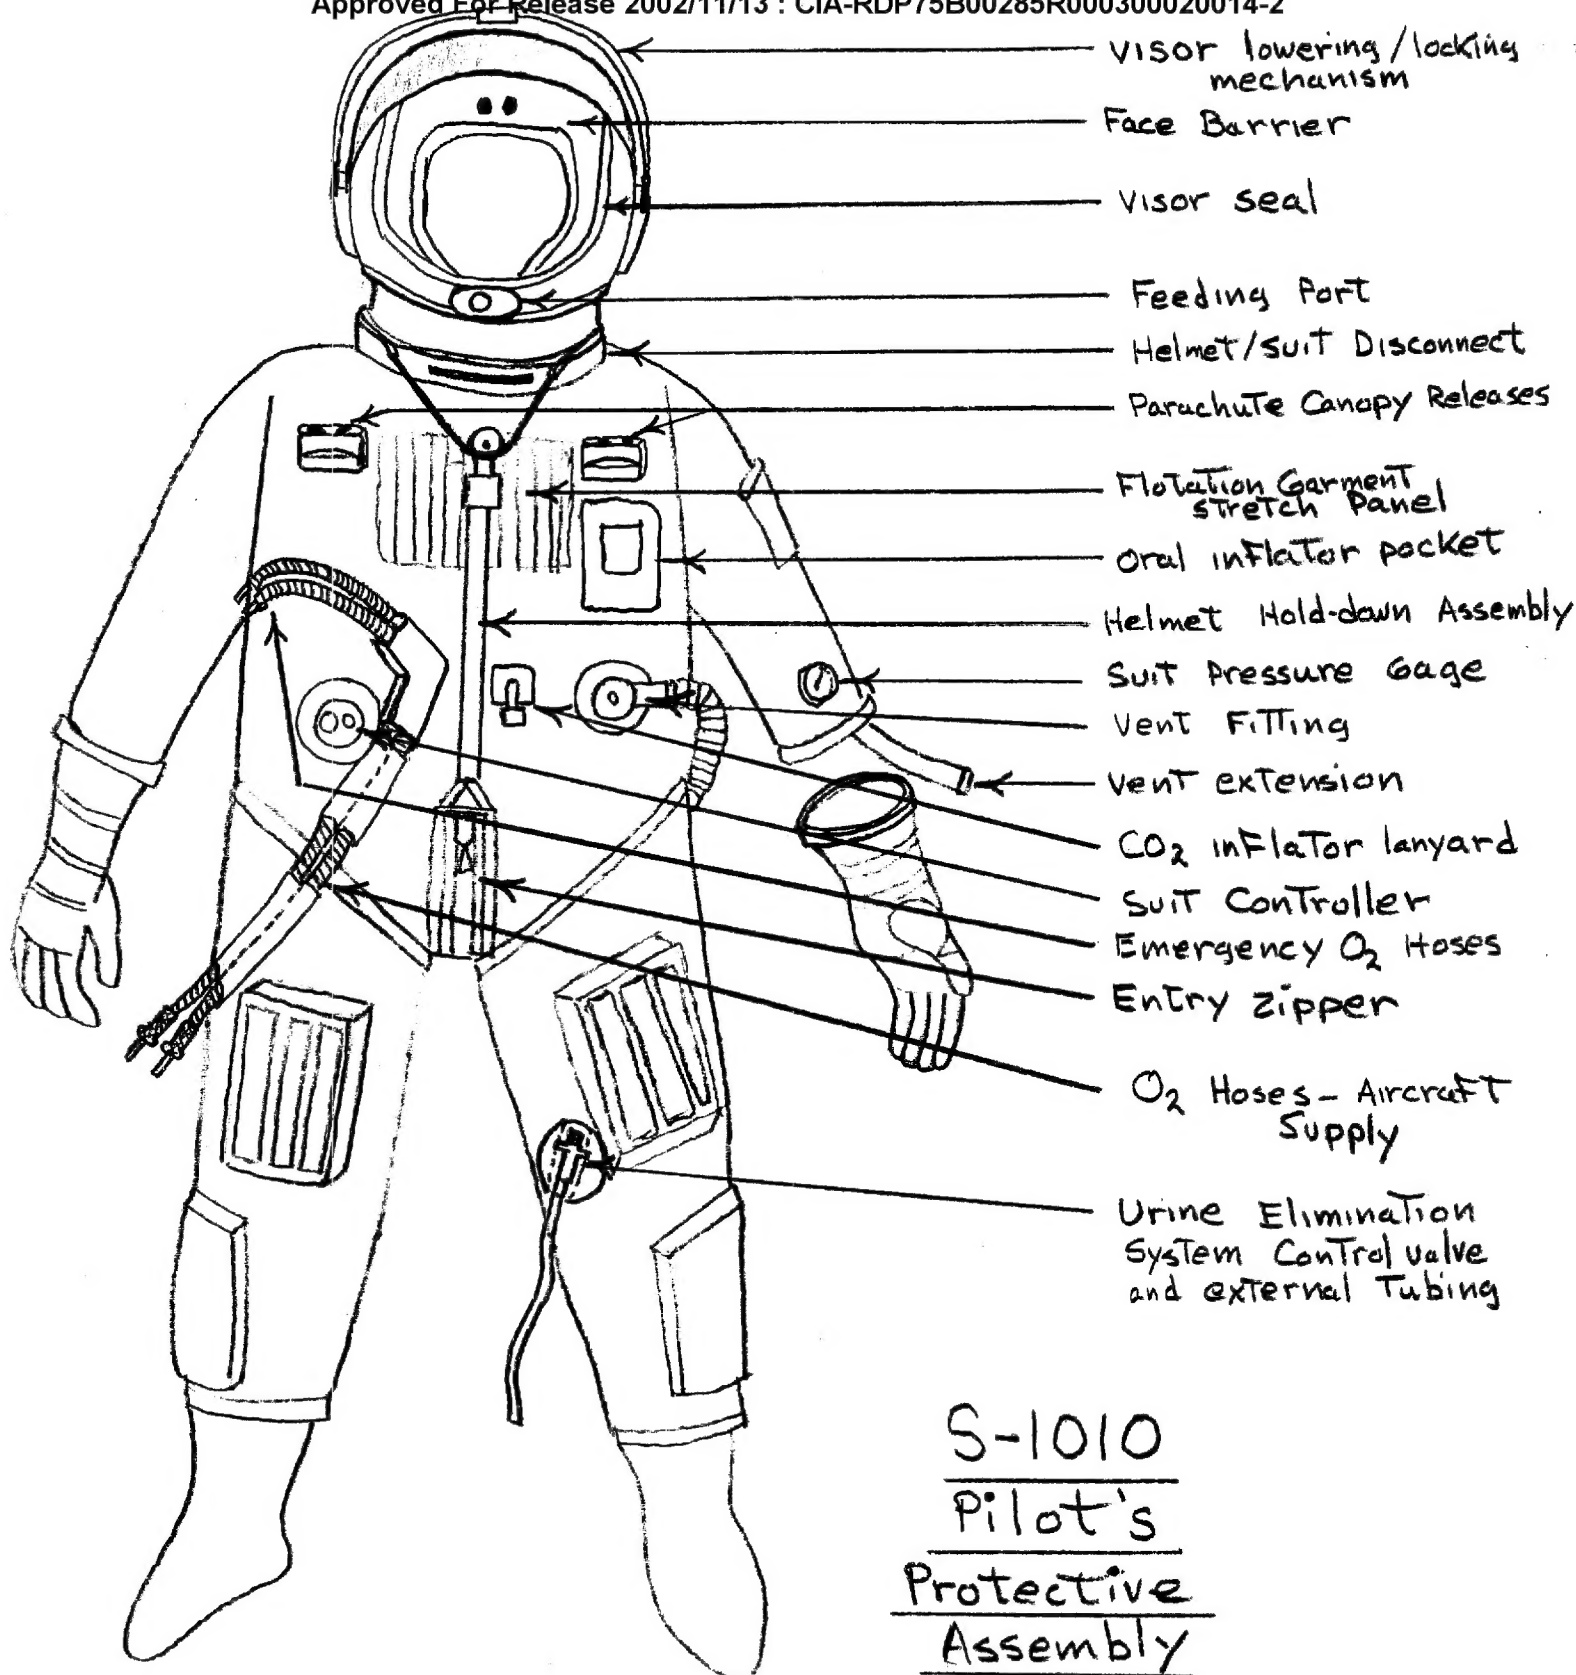 Approved For Release 2002/11/13 : CIA-RDP75B00285R000300020014-2
Visor lowering/locking
mechanism
Face Barrier
Visor seal
Feeding Port
Helmet/Suit Disconnect
Parachute Canopy Releases
Flotation Garment
stretch Panel
Oral inflator pocket
Helmet Hold-down Assembly
Suit Pressure Gage
Vent Fitting
Vent extension
CO2 inflator lanyard
Suit Controller
Emergency O2 Hoses
Entry Zipper
O2 Hoses - Aircraft
Supply
Urine Elimination
System Control valve
and external Tubing
S-1010
Pilot's
Protective
Assembly